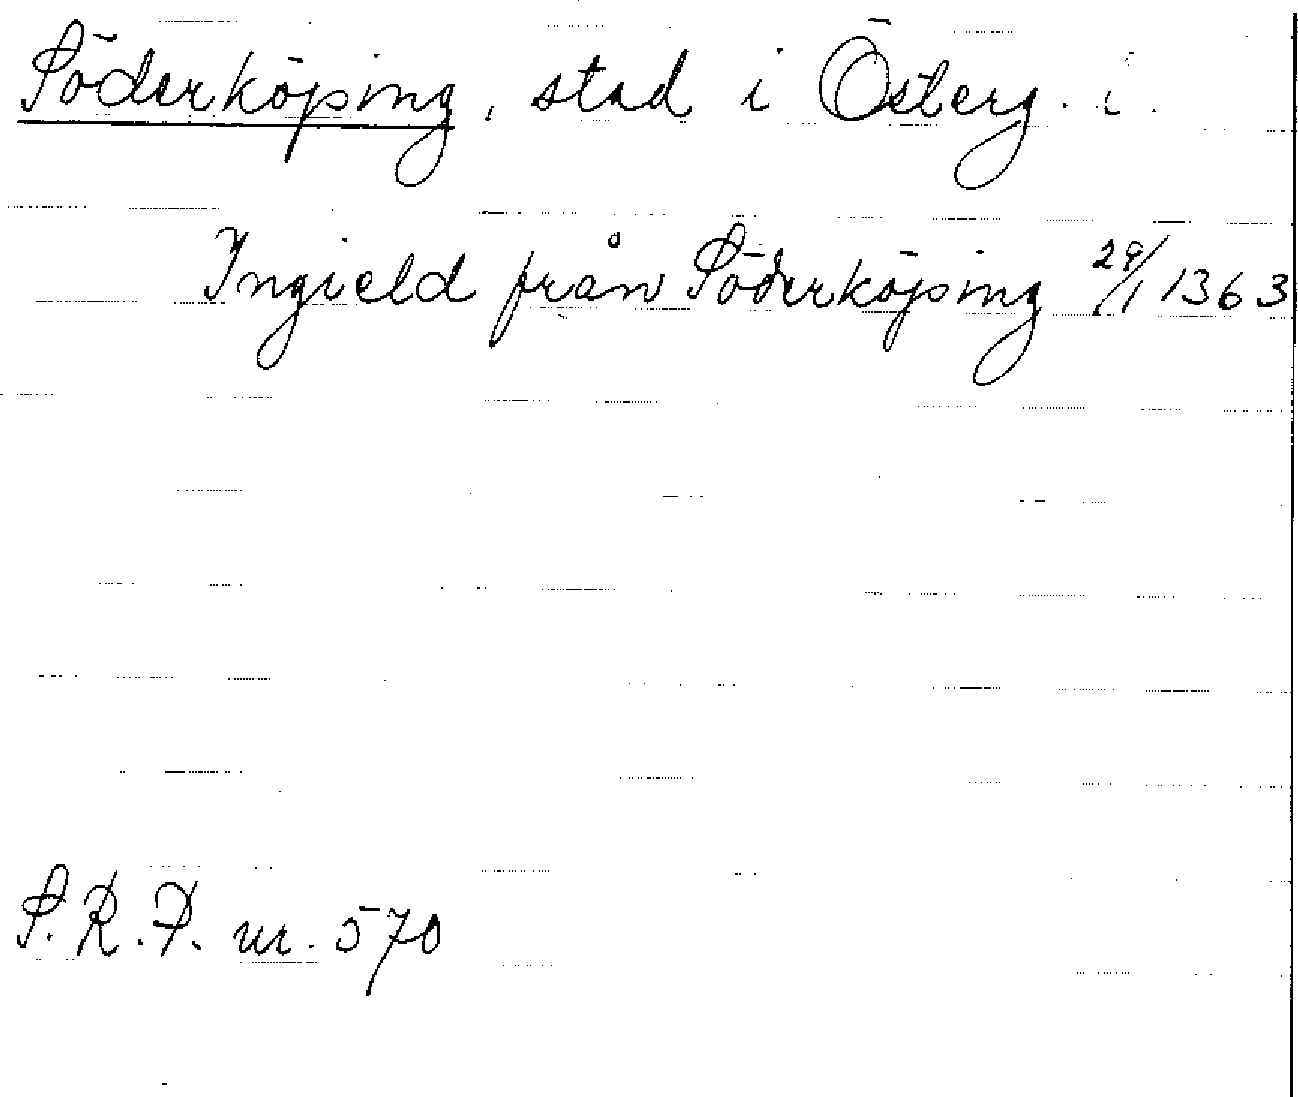 Söderköping, stad i Österg. i.
Ingield från Söderköping 29/1 1363
S.R.P. nr. 570